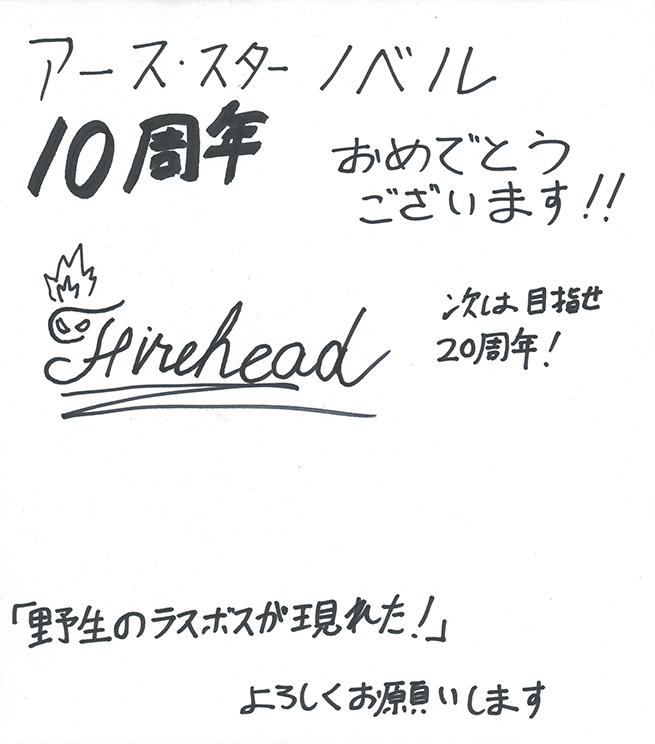 アース・スターノベル
10周年
おめでとう
ございます!!
Firehead
次は目指せ
20周年!
「野生のラスボスが現れた!」
よろしくお願いします